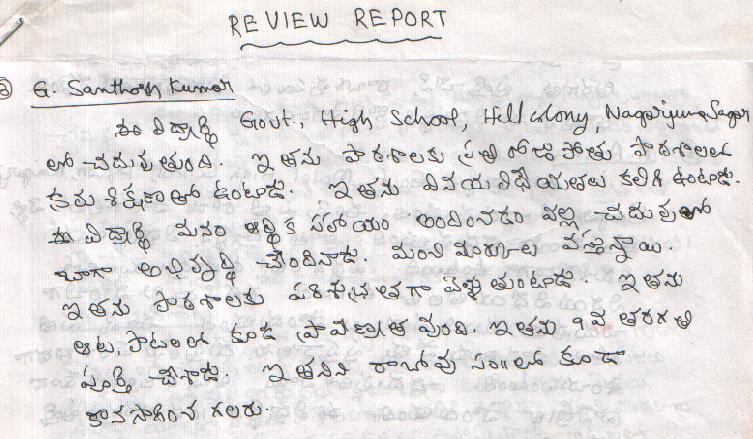 REVIEW REPORT
G. Santhosh Kumar
ఈ విద్యార్థి Govt., High School, Hill colony, Nagarjuna Sagar
లో చదువుతుంది. ఇతను పాఠశాలకు ప్రతి రోజు పోతు పాఠశాలలో
క్రమ శిక్షణతో ఉంటాడు. ఇతను వినయ విధేయతలు కలిగి ఉంటాడు.
ఈ విద్యార్థి మనం ఆర్థిక సహాయం అందించడం వల్ల చదువులో
బాగా అభివృద్ధి చెందినాడు. మంచి మార్కులు వస్తున్నాయి
ఇతను పాఠశాలకు పరిశుభ్రతగా వెళ్ళుతుంటాడు. ఇతను
ఆట, పాటలలో కూడ ప్రావీణ్యత వుంది. ఇతను 9వ తరగతి
పూర్తి చేశాడు. ఇతనిని రాబోవు సం॥లో కూడా
కొనసాగించ గలరు.